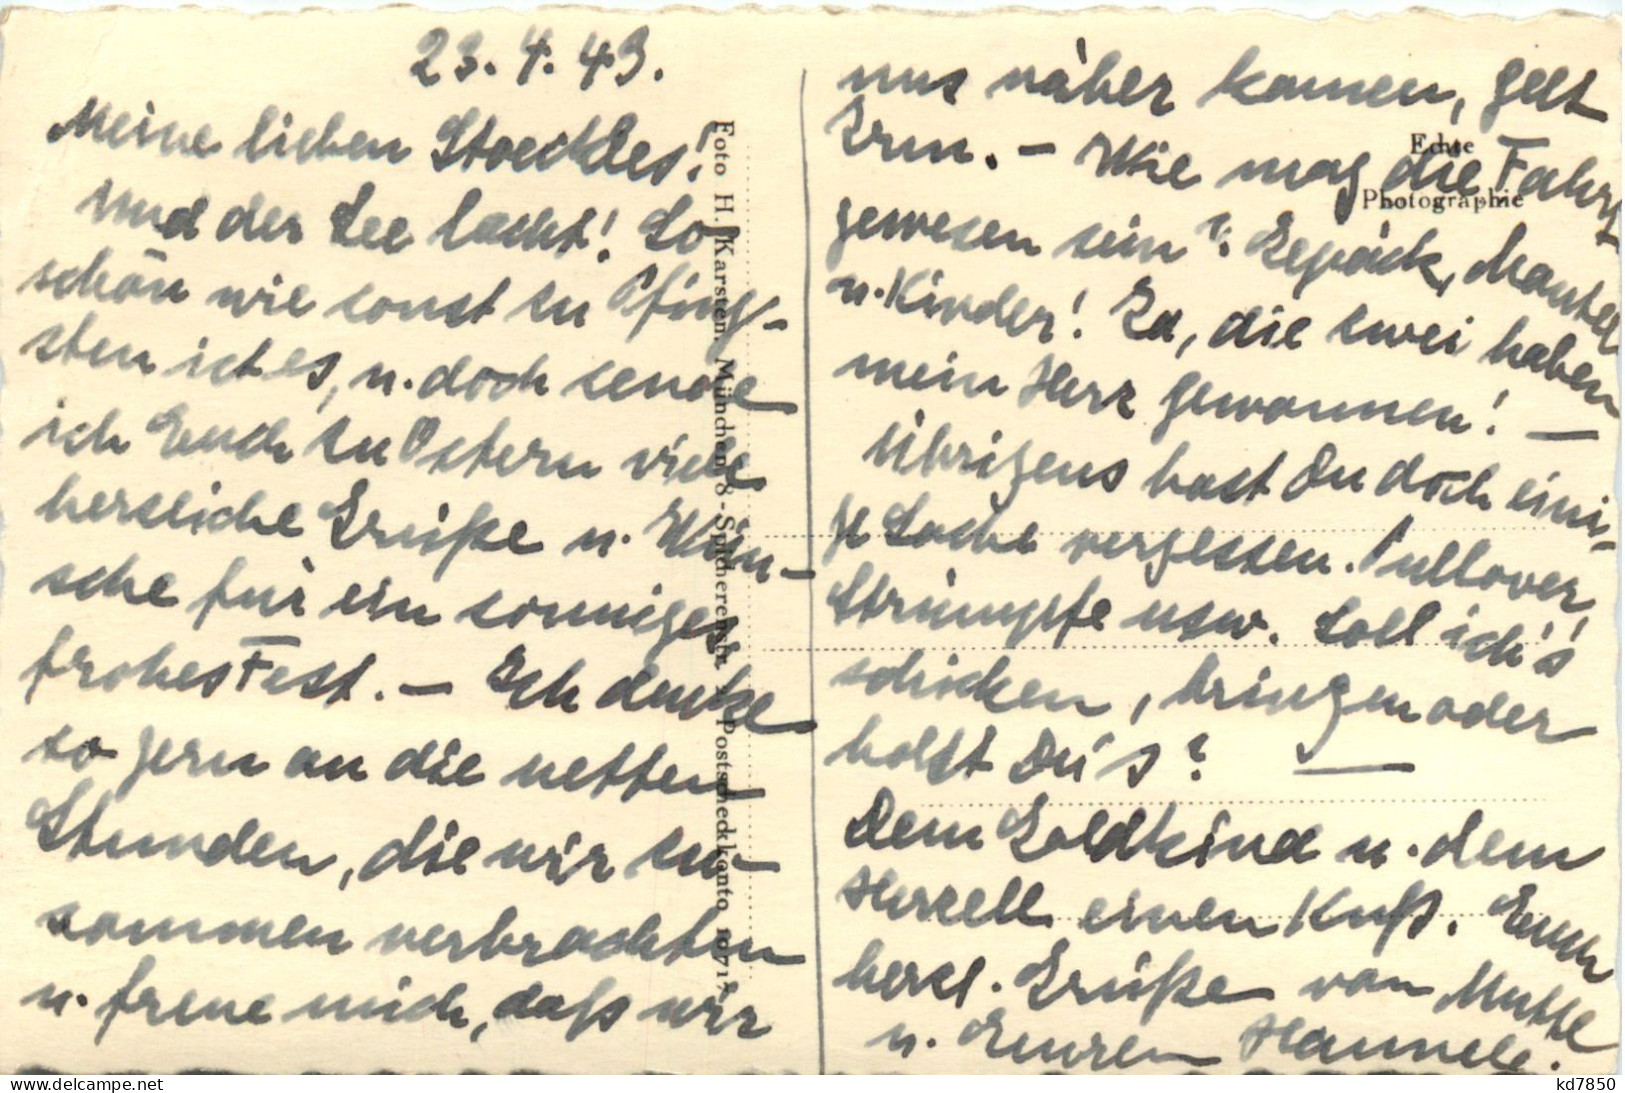 23.4.43.
Meine lieben Stoeckles!
Und der See lacht! So
schön wie sonst zu Pfing-
sten ist es, u. doch sende
ich Euch zu Ostern viele
herzliche Grüße u. Wün-
sche für ein sonniges
frohes Fest. – Ich denke
so gern an die netten
Stunden, die wir zu-
sammen verbrachten
u. freue mich, daß wir
uns näher kamen, gelt
Irm. – Wie mag die Fahrt
gewesen sein? Gepäck, Mantel
u. Kinder! Ja, die zwei haben
mein Herz gewonnen! –
Übrigens hast Du doch eini-
ge Sache vergessen. Pullover,
Strümpfe usw. Soll ich's
schicken, bringen oder
holst Du's? –
Dem Goldkind u. dem
Herzell einen Kuß. Euch
herzl. Grüße von Mutsel
u. Eurer Hannele.
Foto H. Karsten, München 8 - Spicherenstr. Postscheckkonto
Echte
Photographie
kd7850